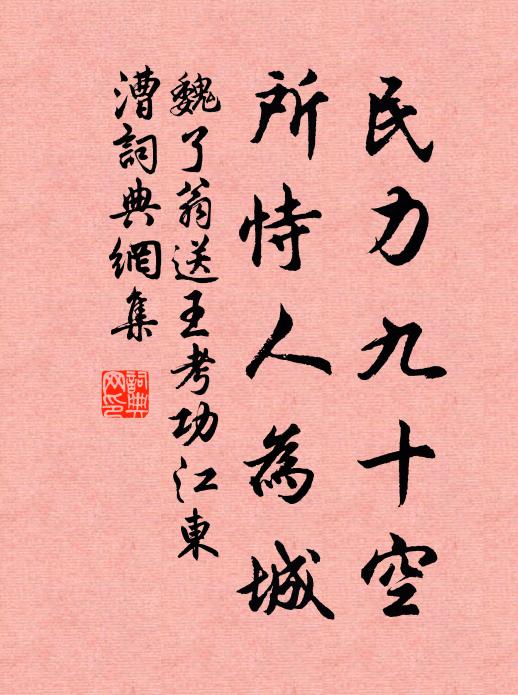 民力九十空
所恃人為城
魏了翁送王考功江東
漕詞典網集
詞典
网印